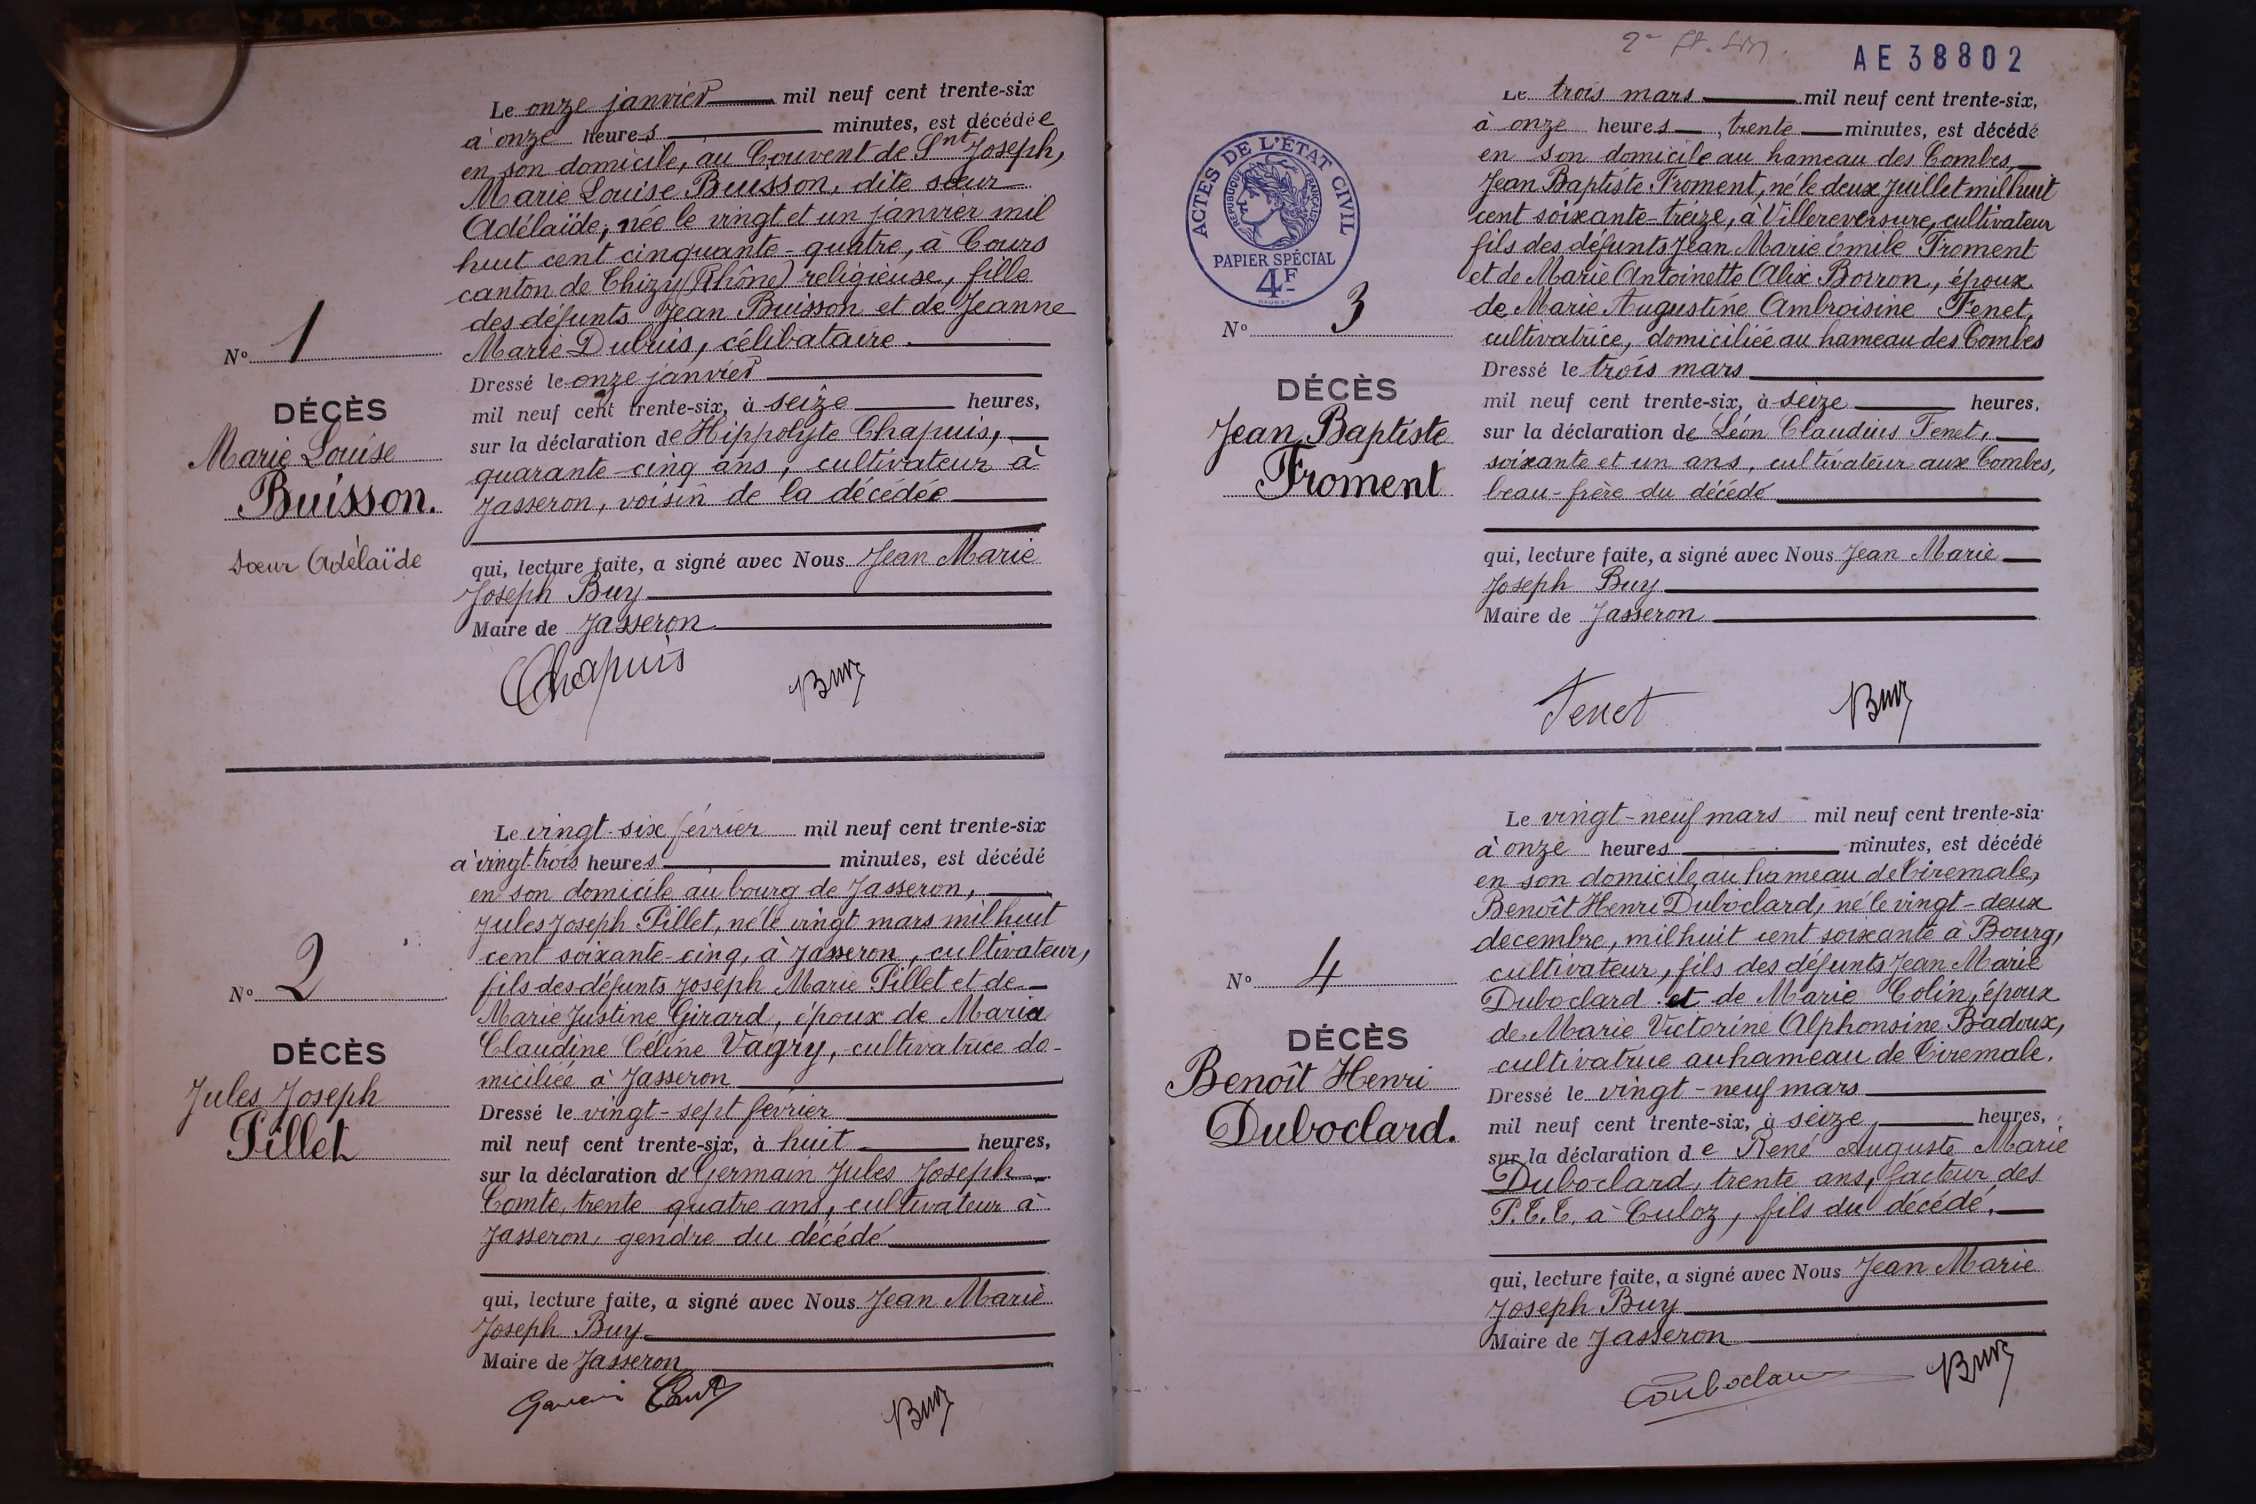 Le onze janvier mil neuf cent trente-six
à onze heures minutes, est décédée
en son domicile, au Couvent de Snt Joseph,
Marie Louise Buisson, dite sœur
Adélaïde, née le vingt et un janvier mil
huit cent cinquante-quatre, à Cours
canton de Thizy (Rhône) religieuse, fille
des défunts Jean Buisson et de Jeanne
Marie Dubuis, célibataire
Dressé le onze janvier
mil neuf cent trente-six, à seize heures,
sur la déclaration de Hippolyte Chapuis,
quarante-cinq ans, cultivateur à
Jasseron, voisin de la décédée
qui, lecture faite, a signé avec Nous Jean Marie
Joseph Buy
Maire de Jasseron
Chapuis Buy
N° 1
DÉCÈS
Marie Louise
Buisson.
sœur Adélaïde
Le vingt-six février mil neuf cent trente-six
à vingt-trois heures minutes, est décédé
en son domicile au bourg de Jasseron,
Jules Joseph Pillet, né le vingt mars mil huit
cent soixante-cinq, à Jasseron, cultivateur,
fils des défunts Joseph Marie Pillet et de
Marie Justine Girard, époux de Maria
Claudine Céline Vagry, cultivatrice do-
miciliée à Jasseron
Dressé le vingt-sept février
mil neuf cent trente-six, à huit heures,
sur la déclaration de Germain Jules Joseph
Comte, trente quatre ans, cultivateur à
Jasseron, gendre du décédé
qui, lecture faite, a signé avec Nous Jean Marie
Joseph Buy
Maire de Jasseron
Buy
N° 2
DÉCÈS
Jules Joseph
Pillet
AE 38802
Le trois mars mil neuf cent trente-six,
à onze heures, trente minutes, est décédé
en son domicile au hameau des Combes
Jean Baptiste Froment, né le deux Juillet mil huit
cent soixante-treize, à Villereversure, cultivateur
fils des défunts Jean Marie Émile Froment
et de Marie Antoinette Alix Borron, époux
de Marie Augustine Ambroisine Fenet,
cultivatrice, domiciliée au hameau des Combes
Dressé le trois mars
mil neuf cent trente-six, à seize heures,
sur la déclaration de Léon Claudius Fenet,
soixante et un ans, cultivateur aux Combes,
beau-frère du décédé
qui, lecture faite, a signé avec Nous Jean Marie
Joseph Buy
Maire de Jasseron
Fenet Buy
ACTES DE L'ÉTAT CIVIL
RÉPUBLIQUE FRANÇAISE
PAPIER SPÉCIAL
4F
N° 3
DÉCÈS
Jean Baptiste
Froment
Le vingt-neuf mars mil neuf cent trente-six
à onze heures minutes, est décédé
en son domicile, au hameau de Tiremale,
Benoît Henri Duboclard, né le vingt-deux
décembre, mil huit cent soixante à Bourg,
cultivateur, fils des défunts Jean Marie
Duboclard et de Marie Colin, époux
de Marie Victorine Alphonsine Badoux,
cultivatrice au hameau de Tiremale.
Dressé le vingt-neuf mars
mil neuf cent trente-six, à seize heures,
sur la déclaration de René Auguste Marie
Duboclard, trente ans, facteur des
P.T.T. à Culoz, fils du décédé.
qui, lecture faite, a signé avec Nous Jean Marie
Joseph Buy
Maire de Jasseron
Buy
N° 4
DÉCÈS
Benoît Henri
Duboclard.